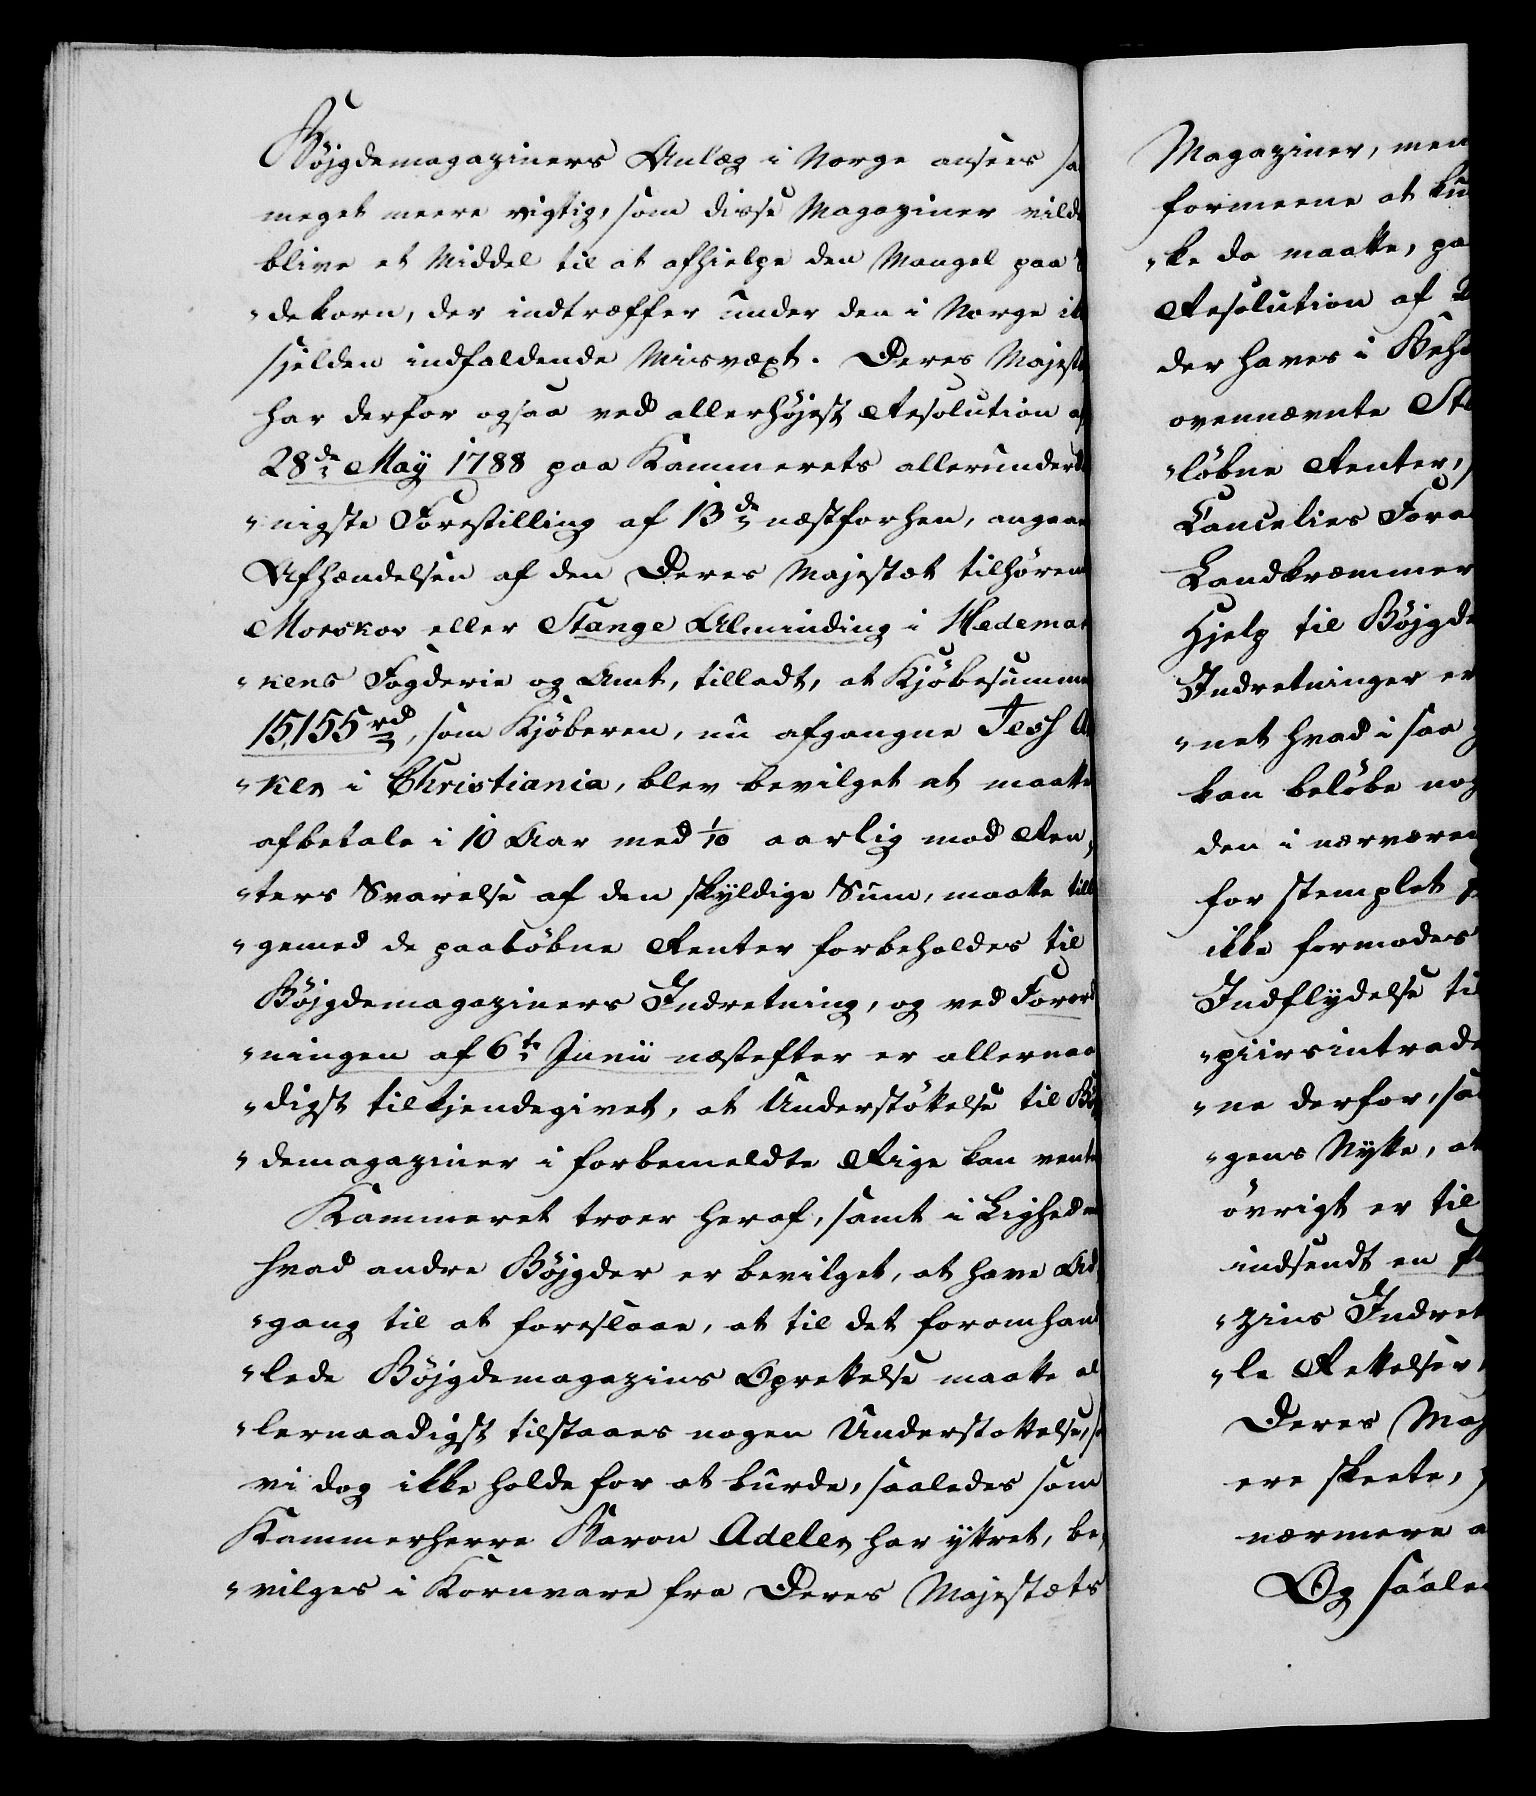 Böjgdemagaziners Anlæg i Norge ansees sa
meget meere vigtig, som disse Magaziner vilde
blive et Middel til at afhielpe den Mangel paa
"dekorn, der indtræffer under den i Norge ik
sjelden indfaldende Misvæxt. Deres Majest
har derfor ogsaa ved allerhöjest Resolution af
28de May 1788 paa Kammerets allerunderd
"nigste Forestilling af 13de næstforhen, angaae
Afhændelsen af den Deres Majestæt tilhörend
Morskov eller Stange Alminding i Hedemar
"kens Fogderie og Amt, tilladt, at Kjöbesumme
15,155 rd, som Kjöberen, nu afgangne Jess An
"ker i Christiania, blev bevilget at maatte
afbetale i 10 Aar med 1/10 aarlig mod Ren,
"ters Svarelse af den skyldige Sum, maatte till
"gemed de paalöbne Renter forbeholdes til
Böjgdemagaziners Indretning, og ved Forord
"ningen af 6te Junii næstefter er allernaa
"digst tilkjendegivet, at Understöttelse til Böj
"demagaziner i forbemeldte Rige kan vente
Kammeret troer heraf, samt i Lighed m
hvad andre Böjgder er bevilget, at have Ad,
"gang til at foreslaae, at til det foromhand
"lede Böjgdemagazins Oprettelse maatte al
"lernaadigst tilstaaes nogen Understottelse, so
vi dog ikke holde for at burde, saaledes som
Kammerherre Baron Adeler har yttret, be,
"vilges i Kornvare fra Deres Majestæts
Magaziner, men
formeene at ku
"ke da maatte, pa
Resolution af 2
der haves i Beho
ovennævnte Sta
"löbne Renter,
Cancelies Fora
Landkræmmer
Hjelp til Böjgde
Indretninger er
"net hvad i saa
kan belöbe nog
den i nærværen
for stemplet p
ikke formodes
Indflydelse ti
"piirsintrade
"ne derfor, sa
"gens Nytte, at
övrigt er til
indsendt en
"zins Indret
"le Rettelser
Deres Maj
ere skeete,
nærmere a
Og saale